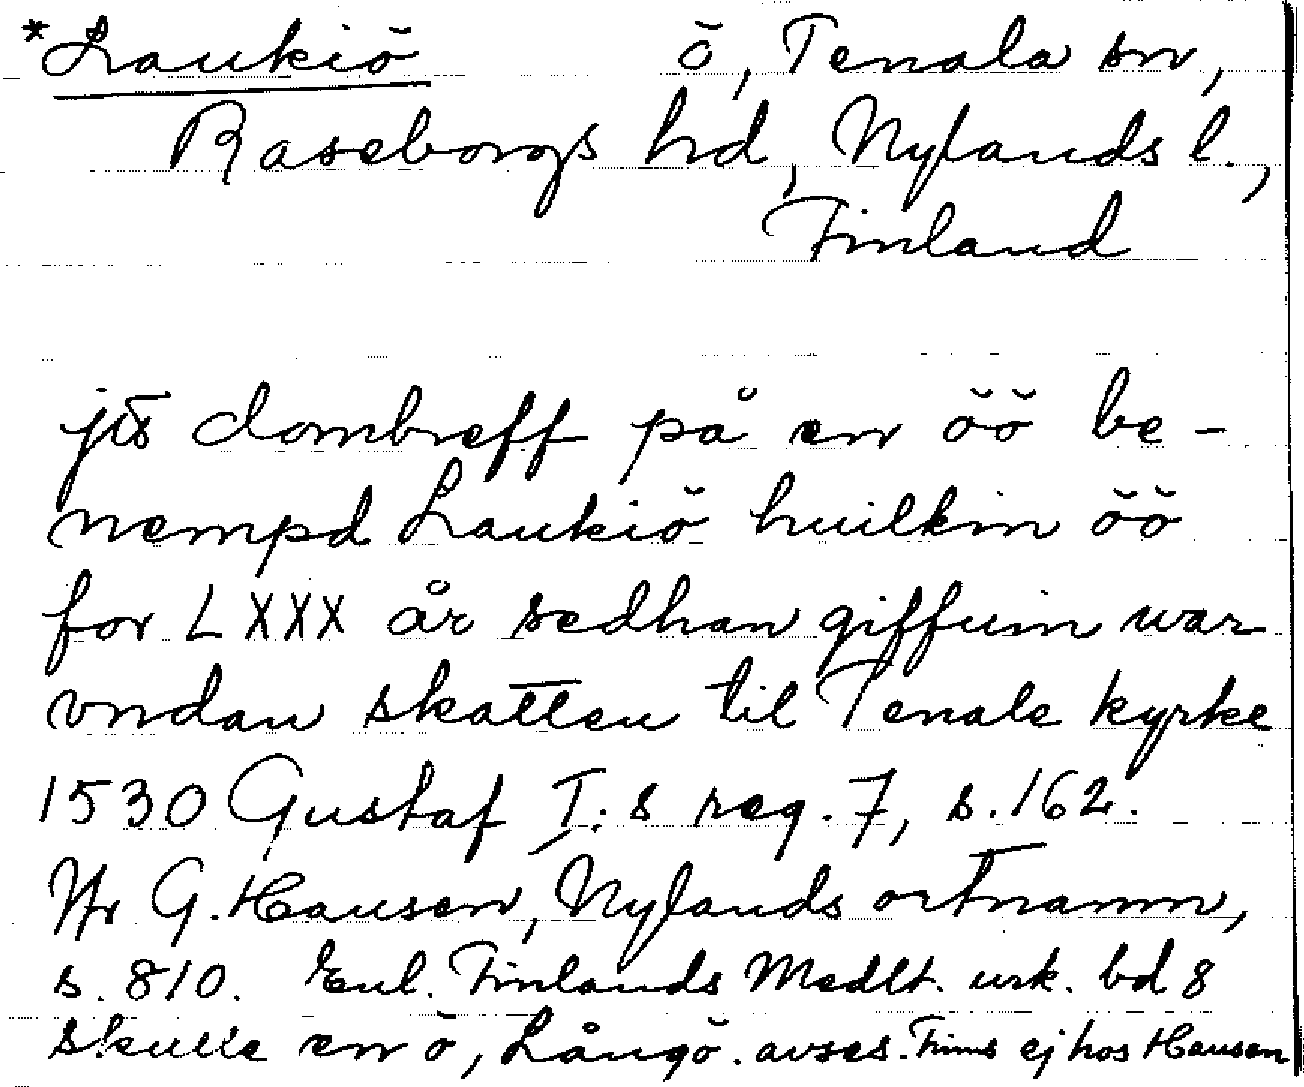 *Laukiö ö, Tenala sn,
Raseborgs hd, Nylands l.,
Finland
jtē dombreff på en öö be-
nempd Laukiö huilkin öö
for LXXX år sedhan giffuin war
vndan skatten til Tenale kyrke
1530 Gustaf I:s reg. 7, s. 162.
Jfr G. Hausen, Nylands ortnamn,
s. 810. Enl. Finlands Medlt. urk. bd 8
skulle en ö, Långö. avses. Finns ej hos Hausen